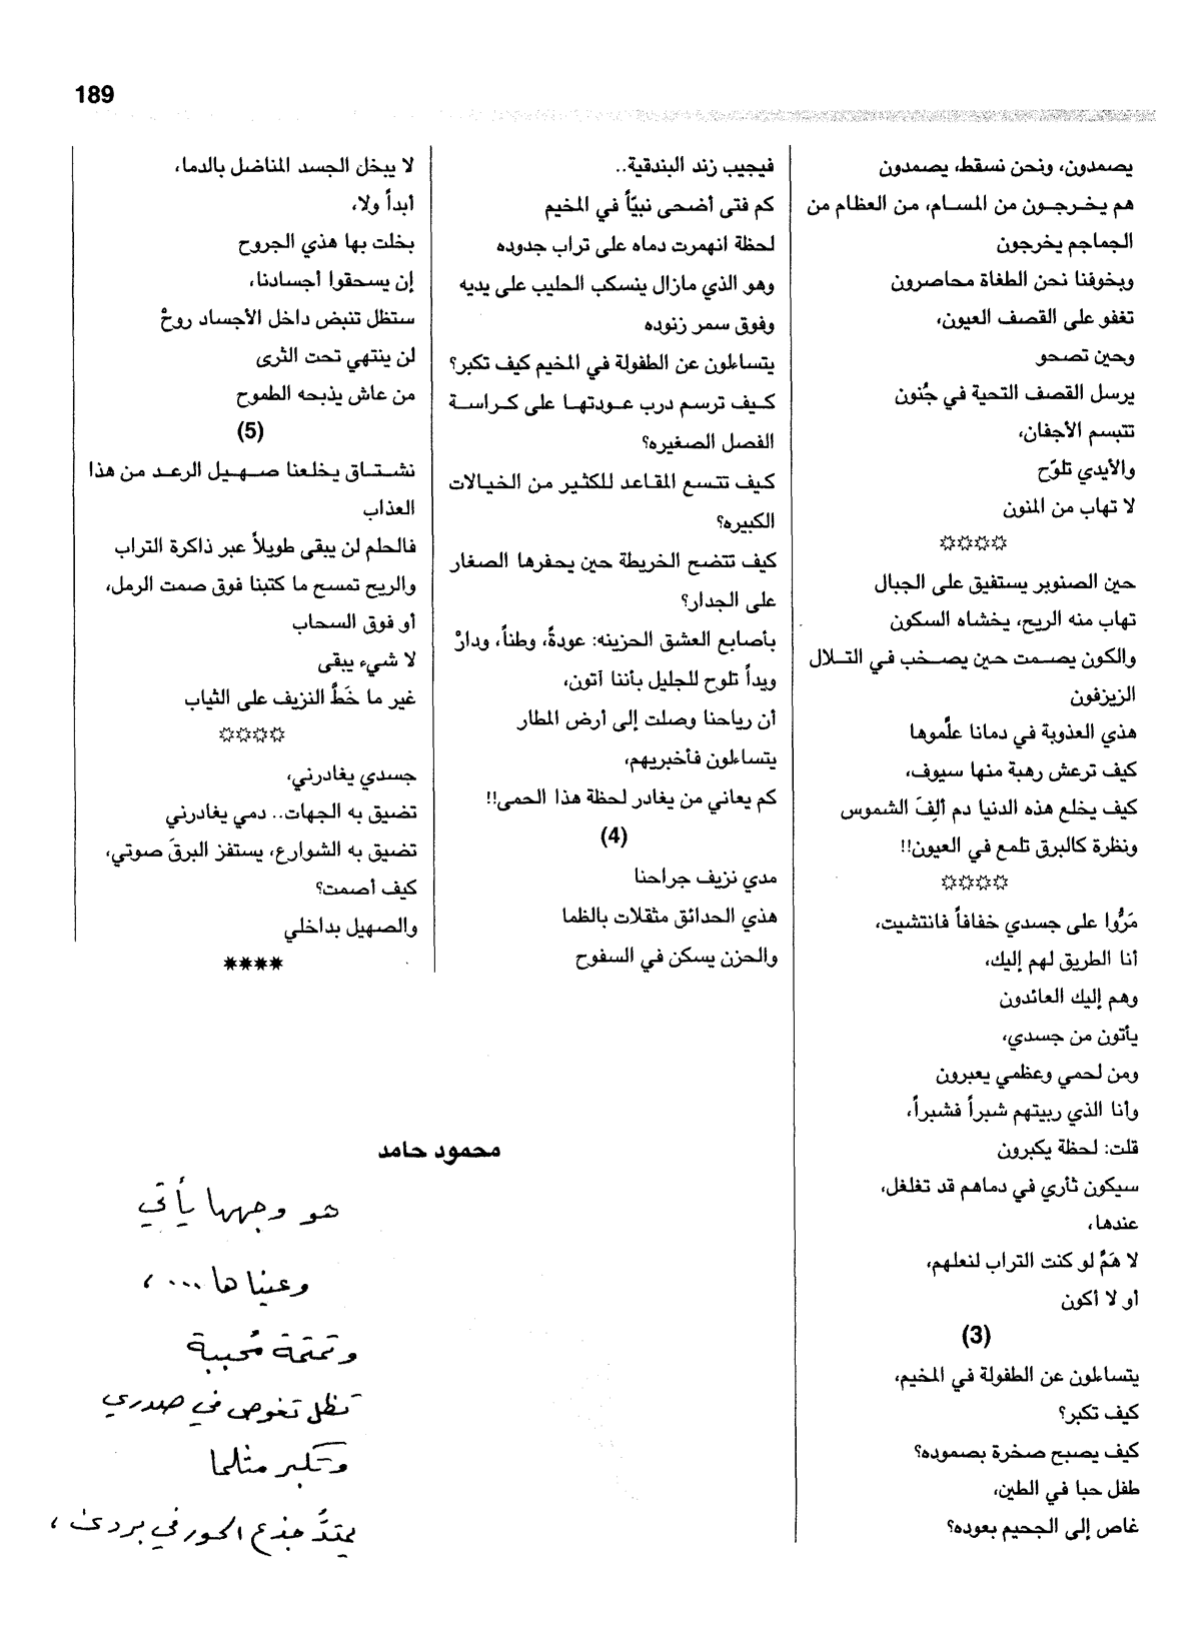 189
يصمدون، ونحن نسقط، يصمدون
هم يخـرجـون من المسـام، من العظام من
الجماجم يخرجون
وبخوفنا نحن الطغاة محاصرون
تغفو على القصف العيون،
وحين تصحو
يرسل القصف التحية في جُنون
تتبسم الأجفان،
والأيدي تلوّح
لا تهاب من المنون
☼☼☼☼
حين الصنوبر يستفيق على الجبال
تهاب منه الريح، يخشاه السكون
والكون يصـمت حين يصـخب في التـلال
الزيزفون
هذي العذوبة في دمانا علَّموها
كيف ترعش رهبة منها سيوف،
كيف يخلع هذه الدنيا دم ألِفَ الشموس
ونظرة كالبرق تلمع في العيون!!
☼☼☼☼
مَرُّوا على جسدي خفافاً فانتشيت،
أنا الطريق لهم إليك،
وهم إليك العائدون
يأتون من جسدي،
ومن لحمي وعظمي يعبرون
وأنا الذي ربيتهم شبراً فشبراً،
قلت: لحظة يكبرون
سيكون ثأري في دماهم قد تغلغل،
عندها،
لا هَمَّ لو كنت التراب لنعلهم،
أو لا أكون
(3)
يتساءلون عن الطفولة في المخيم،
كيف تكبر؟
كيف يصبح صخرة بصموده؟
طفل حبا في الطين،
غاص إلى الجحيم بعوده؟
فيجيب زند البندقية..
كم فتى أضحى نبيّاً في المخيم
لحظة انهمرت دماه على تراب جدوده
وهو الذي مازال ينسكب الحليب على يديه
وفوق سمر زنوده
يتساءلون عن الطفولة في المخيم كيف تكبر؟
كـيف ترسم درب عـودتهـا على كـراسـة
الفصل الصغيره؟
كيف تتسع المقاعد للكثير من الخيالات
الكبيره؟
كيف تتضح الخريطة حين يحفرها الصغار
على الجدار؟
بأصابع العشق الحزينه: عودةً، وطناً، ودارْ
ويداً تلوح للجليل بأننا آتون،
أن رياحنا وصلت إلى أرض المطار
يتساءلون فأخبريهم،
كم يعاني من يغادر لحظة هذا الحمى!!
(4)
مدي نزيف جراحنا
هذي الحدائق مثقلات بالظما
والحزن يسكن في السفوح
لا يبخل الجسد المناضل بالدما،
أبداً ولا،
بخلت بها هذي الجروح
إن يسحقوا أجسادنا،
ستظل تنبض داخل الأجساد روحْ
لن ينتهي تحت الثرى
من عاش يذبحه الطموح
(5)
نشـتـاق يـخلعنا صـهـيل الرعـد مـن هذا
العذاب
فالحلم لن يبقى طويلاً عبر ذاكرة التراب
والريح تمسح ما كتبنا فوق صمت الرمل،
أو فوق السحاب
لا شيء يبقى
غير ما خَطَّ النزيف على الثياب
☼☼☼☼
جسدي يغادرني،
تضيق به الجهات.. دمي يغادرني
تضيق به الشوارع، يستفز البرقَ صوتي،
كيف أصمت؟
والصهيل بداخلي
****
محمود حامد
هو وجهها يأتي
وعيناها ...،
وتمتمة مُحببة
تظل تغوص في صدري
وتكبر مثلما
يمتدُّ جذع الحور في بردى،